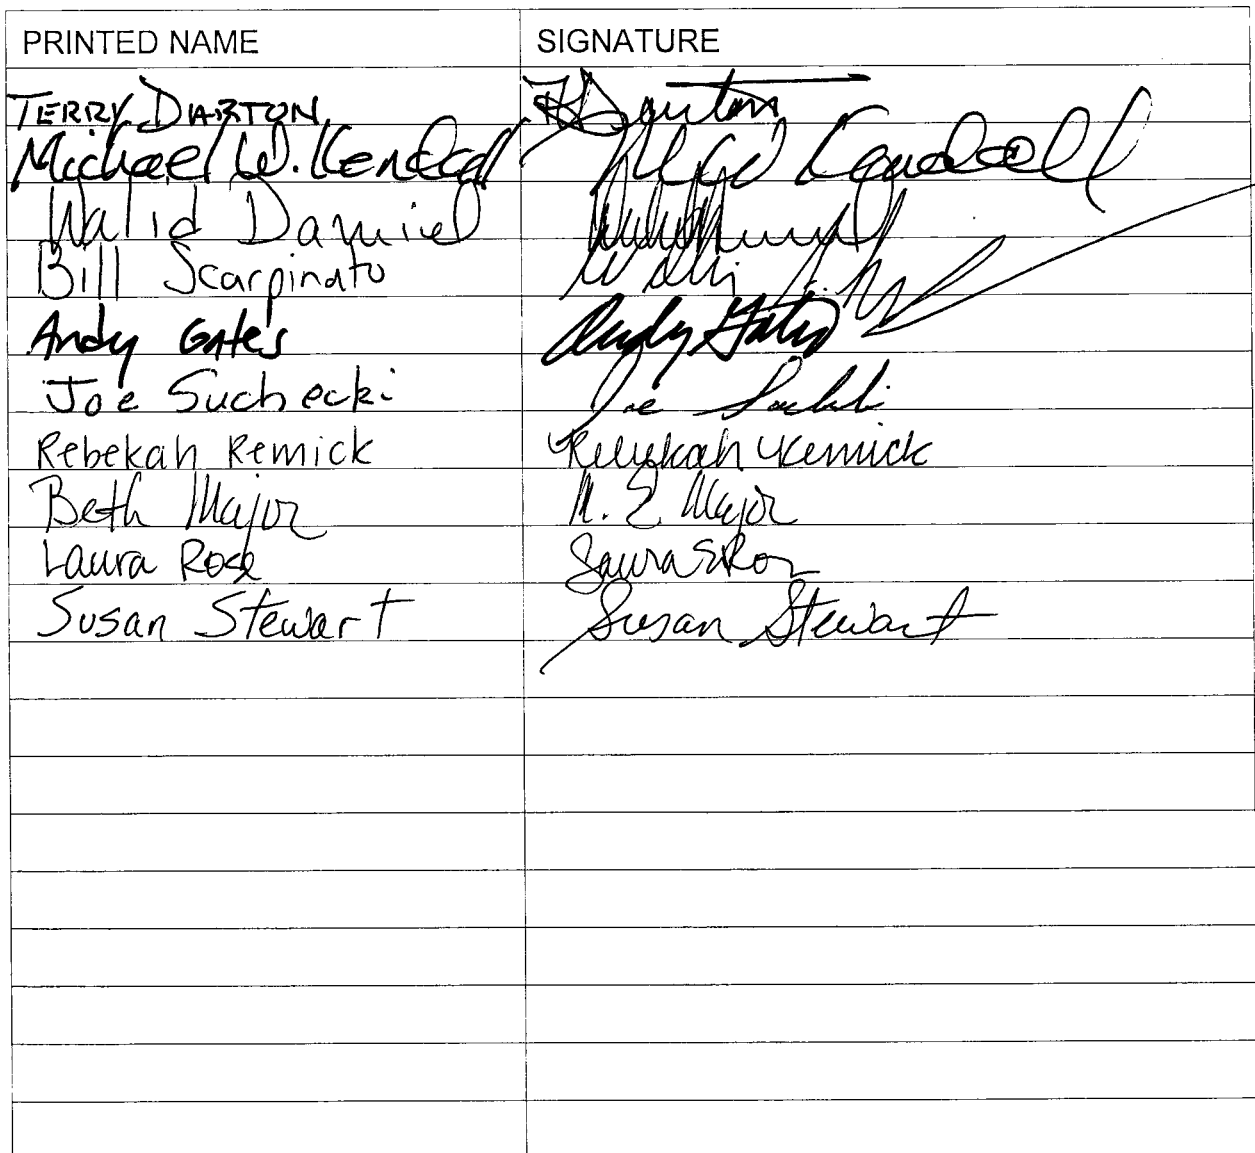 PRINTED NAME SIGNATURE
TERRY DARTON Darton
Michael W. Kendall Kendall
Walid Daniel
Bill Scarpinato
Andy Gates Andy Gates
Joe Suchecki Joe Suchecki
Rebekah Remick Rebekah Remick
Beth Major M. E. Major
Laura Rose Laura S Rose
Susan Stewart Susan Stewart